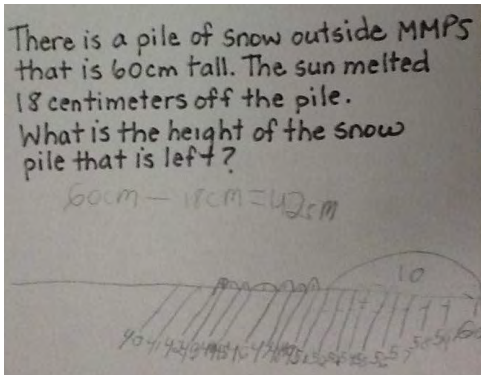 There is a pile of snow outside MMPS
that is 60cm tall. The sun melted
18 centimeters off the pile.
What is the height of the snow
pile that is left?
60cm - 18cm = 42cm
10
40 41 42 43